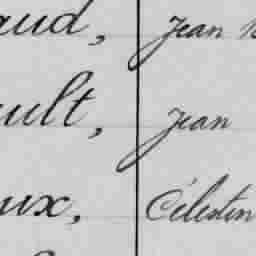 aud, Jean
ult, Jean
ux, Célestin